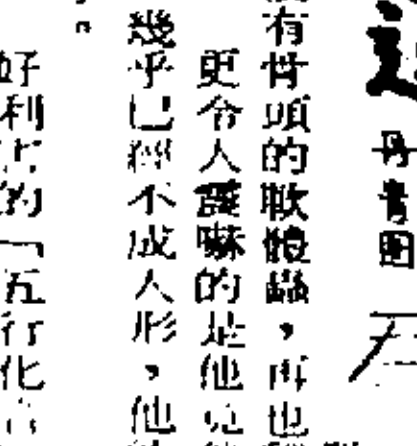 丹青圖
有骨頭的軟體蟲，再也
更令人驚嚇的是他竟
幾乎已經不成人形，他
。
好利害的「五行化